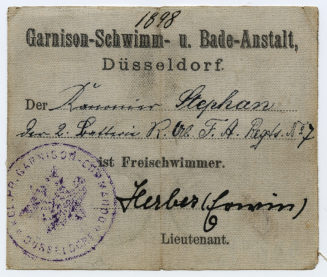 1898
Garnison-Schwimm- u. Bade-Anstalt,
Düsseldorf.
Der Kanonier Stephan
der 2. Batterie F. A. Regts. No 7
ist Freischwimmer.
Herber (Erwin)
Lieutenant.
GARNISON-COMMANDO
DÜSSELDORF